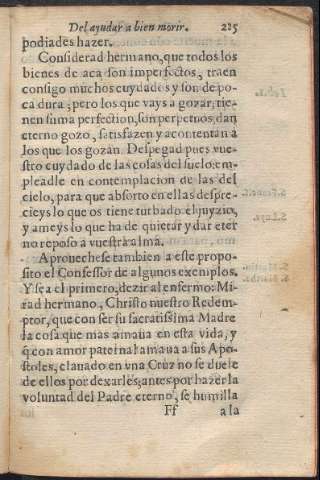 Del ayudar a bien morir. 225
podiades hazer.
Considerad hermano, que todos los
bienes de aca son imperfectos, traen
consigo muchos cuydados y son de po-
ca dura; pero los que vays a gozar, tie-
nen suma perfection, son perpetuos, dan
eterno gozo, satisfazen y acontentan a
los que los gozan. Despegad pues vue-
stro cuydado de las cosas del suelo: em-
pleadle en contemplacion de las del
cielo, para que absorto en ellas despre-
cieys lo que os tiene turbado el juyzio,
y ameys lo que ha de quietar y dar eter
no reposo a vuestra alma.
Aprouechese tambien a este propo-
sito el Confessor de algunos exemplos.
Y sea el primero, dezir al enfermo: Mi-
rad hermano, Christo nuestro Redem-
ptor, que con ser su sacratissima Madre
la cosa que mas amaua en esta vida, y
q̃ con amor paternal amaua a sus Apo-
stoles, clauado en vna Cruz no se duele
de ellos por dexarles; antes por hazer la
voluntad del Padre eterno, se humilla
Ff a la